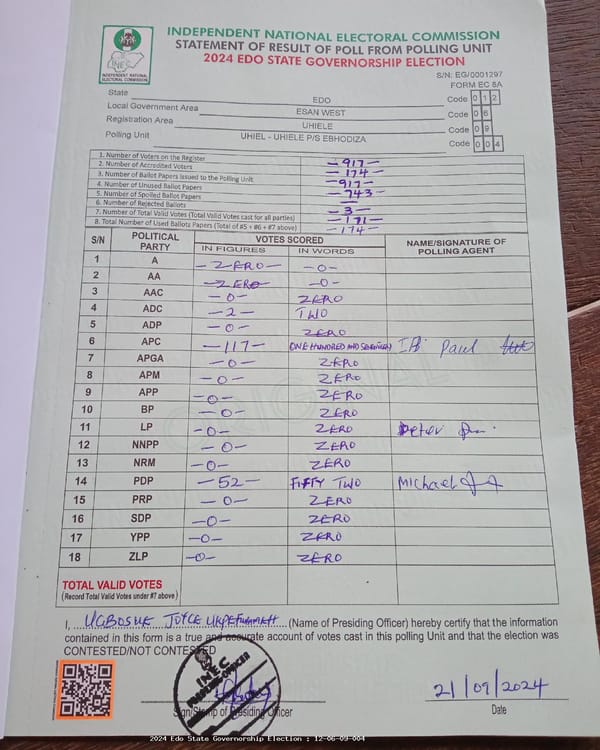 INDEPENDENT NATIONAL ELECTORAL COMMISSION
STATEMENT OF RESULT OF POLL FROM POLLING UNIT
2024 EDO STATE GOVERNORSHIP ELECTION
INEC
INDEPENDENT NATIONAL ELECTORAL COMMISSION
S/N: EG/0001297
FORM EC 8A
State EDO Code 0 1 2
Local Government Area ESAN WEST Code 0 6
Registration Area UHIELE Code 0 9
Polling Unit UHIEL - UHIELE P/S EBHODIZA Code 0 0 4
1. Number of Voters on the Register -917-
2. Number of Accredited Voters -174-
3. Number of Ballot Papers Issued to the Polling Unit -917-
4. Number of Unused Ballot Papers -743-
5. Number of Spoiled Ballot Papers -
6. Number of Rejected Ballots -3-
7. Number of Total Valid Votes (Total Valid Votes cast for all parties) -171-
8. Total Number of Used Ballots Papers (Total of #5 + #6 + #7 above) -174-
S/N POLITICAL PARTY VOTES SCORED NAME/SIGNATURE OF POLLING AGENT
IN FIGURES IN WORDS
1 A -ZERO- -0-
2 AA -ZERO- -0-
3 AAC -0- ZERO
4 ADC -2- TWO
5 ADP -0- ZERO
6 APC -117- ONE HUNDRED AND SEVENTEEN Paul
7 APGA -0- ZERO
8 APM -0- ZERO
9 APP -0- ZERO
10 BP -0- ZERO
11 LP -0- ZERO Peter
12 NNPP -0- ZERO
13 NRM -0- ZERO
14 PDP -52- FIFTY TWO Michael
15 PRP -0- ZERO
16 SDP -0- ZERO
17 YPP -0- ZERO
18 ZLP -0- ZERO
ORIGINAL
TOTAL VALID VOTES
(Record Total Valid Votes under #7 above)
I, JOYCE (Name of Presiding Officer) hereby certify that the information
contained in this form is a true and accurate account of votes cast in this polling Unit and that the election was
CONTESTED/NOT CONTESTED
INEC
Sign/Stamp of Presiding Officer
21/09/2024
Date
2024 Edo State Governorship Election : 12-06-09-004